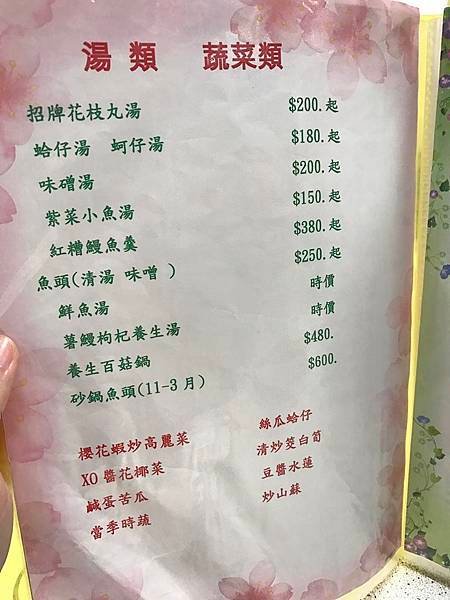 湯 類　蔬菜類
招牌花枝丸湯 $200.起
蛤仔湯 蚵仔湯 $180.起
味磳湯 $200.起
紫菜小魚湯 $150.起
紅糟鰻魚羹 $380.起
魚頭(清湯 味噌 ) $250.起
鮮魚湯 時價
薯鰻枸杞養生湯 時價
養生百菇鍋 $480.
砂鍋魚頭(11-3月) $600.
櫻花蝦炒高麗菜 絲瓜蛤仔
XO醬花椰菜 清炒筊白筍
鹹蛋苦瓜 豆醬水蓮
當季時蔬 炒山蘇